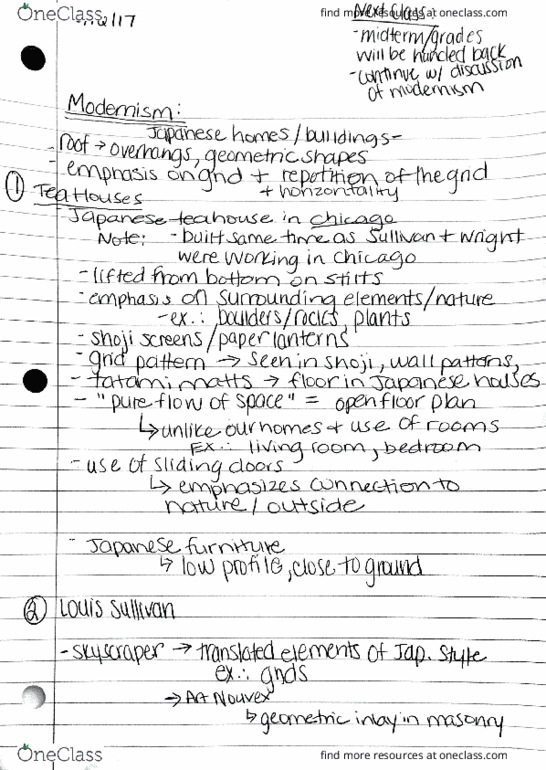 OneClass
find more resources at oneclass.com
/17
Next class:
-midterm/grades
will be handed back
-continue w/ discussion
of modernism
Modernism:
Japanese homes/buildings-
-roof → overhangs, geometric shapes
- emphasis on grid + repetition of the grid
+ horizontality
① Tea Houses
Japanese teahouse in chicago
Note: -built same time as Sullivan + Wright
were working in chicago
-lifted from bottom on stilts
-emphasis on surrounding elements/nature
-ex.: boulders/rocks, plants
-shoji screens/paper lanterns
-grid pattern → seen in shoji, wall pattons,
- tatami matts → floor in Japanese houses
- "pure flow of space" = open floor plan
↳ unlike our homes + use of rooms
EX.: living room, bedroom
- use of sliding doors
↳ emphasizes connection to
nature/outside
- Japanese furniture
↳ low profile, close to ground
② Louis Sullivan
-skyscraper → translated elements of Jap. style
ex.: grids
→ Art Nouvex
↳ geometric inlay in masonry
OneClass
find more resources at oneclass.com